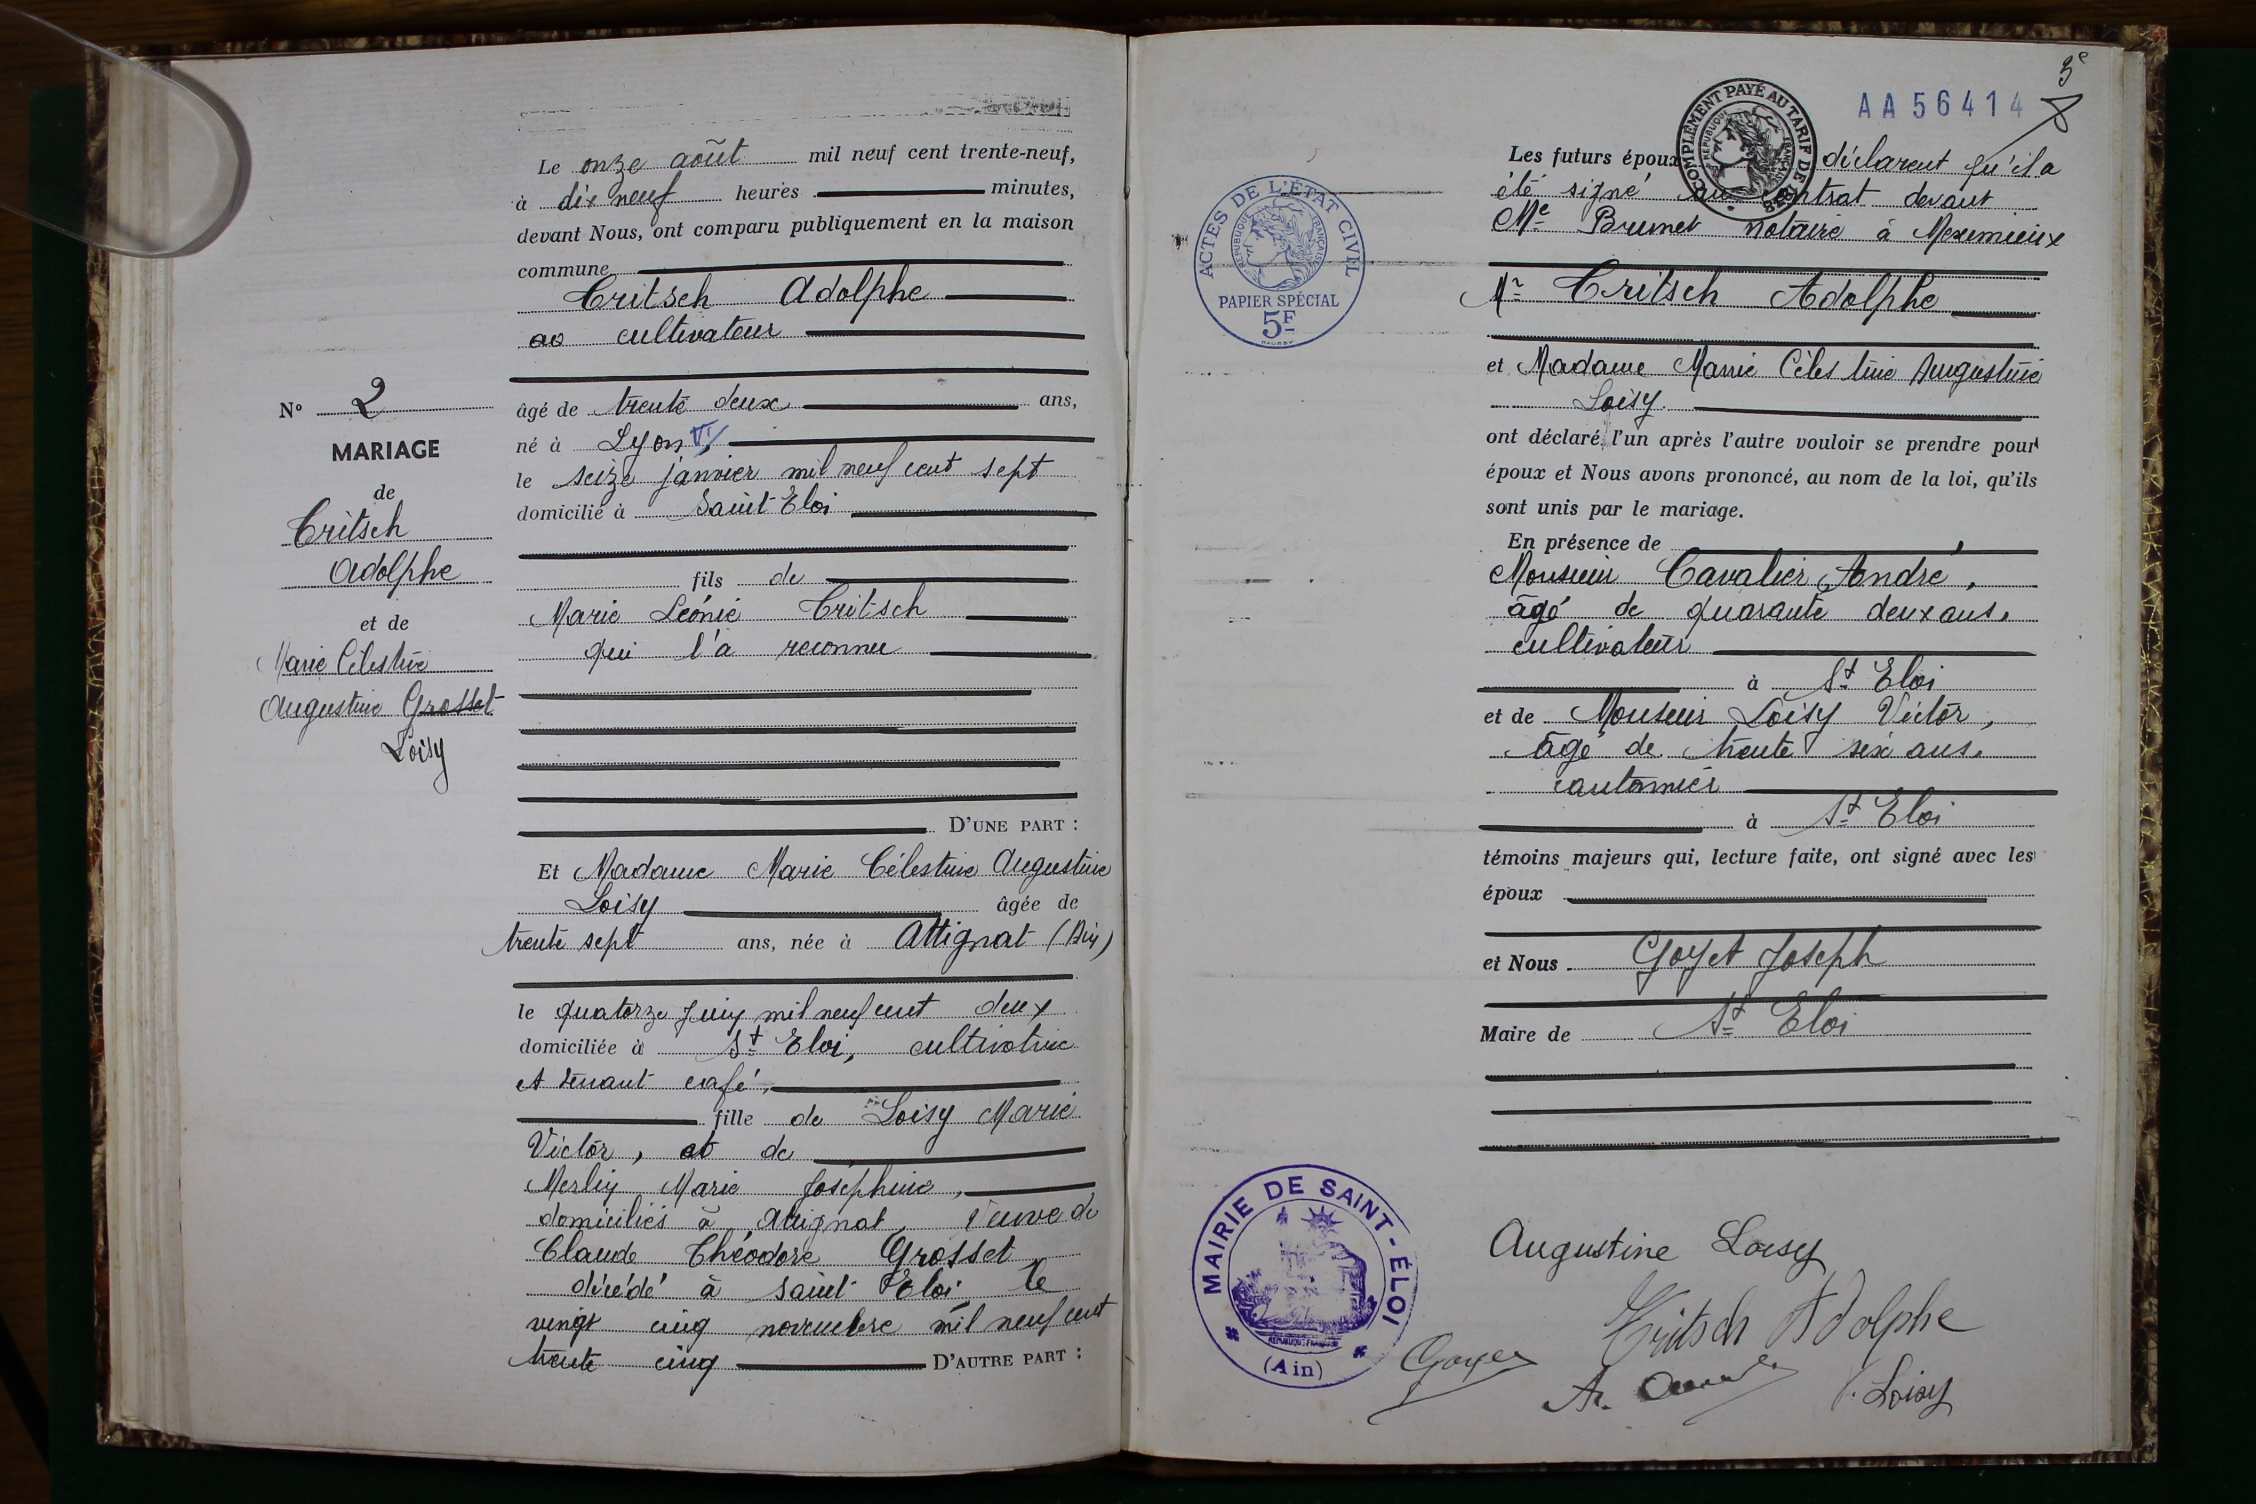 Le onze août mil neuf cent trente-neuf,
à dix neuf heures minutes,
devant Nous, ont comparu publiquement en la maison
commune
Critsch Adolphe
cultivateur
âgé de trente deux ans,
né à Lyon VI
le seize janvier mil neuf cent sept
domicilié à Saint Eloi
fils de
Marie Léonie Critsch
qui l'a reconnu
D'UNE PART :
N° 2
MARIAGE
de
Critsch
Adolphe
et de
Marie Célestine
Augustine Grosset
Loisy
Et Madame Marie Célestine Augustine
Loisy âgée de
trente sept ans, née à Attignat (Ain)
le quatorze Juin mil neuf cent deux
domiciliée à St Eloi, cultivatrice
et tenant café,
fille de Loisy Marie
Victor, et de
Merlin Marie Joséphine,
domiciliés à Attignat, Veuve de
Claude Théodore Grosset
décédé à Saint Eloi le
vingt cinq novembre mil neuf cent
trente cinq D'AUTRE PART :
3e
AA56414
COMPLÉMENT PAYÉ AU TARIF DE
RÉPUBLIQUE FRANÇAISE
ACTES DE L'ÉTAT CIVIL
RÉPUBLIQUE FRANÇAISE
PAPIER SPÉCIAL
5F
Les futurs époux déclarent qu'il a
été signé un contrat devant
Me Brunet notaire à Meximieux
Mr Critsch Adolphe
et Madame Marie Célestine Augustine
Loisy
ont déclaré l'un après l'autre vouloir se prendre pour
époux et Nous avons prononcé, au nom de la loi, qu'ils
sont unis par le mariage.
En présence de
Monsieur Cavalier André,
âgé de quarante deux ans,
cultivateur
à St Eloi
et de Monsieur Loisy Victor,
âgé de trente six ans,
cantonnier
à St Eloi
témoins majeurs qui, lecture faite, ont signé avec les
époux
et Nous Goyet Joseph
Maire de St Eloi
MAIRIE DE SAINT-ÉLOI
RÉPUBLIQUE FRANÇAISE
(Ain)
Augustine Loisy
Critsch Adolphe
Goyet
V. Loisy